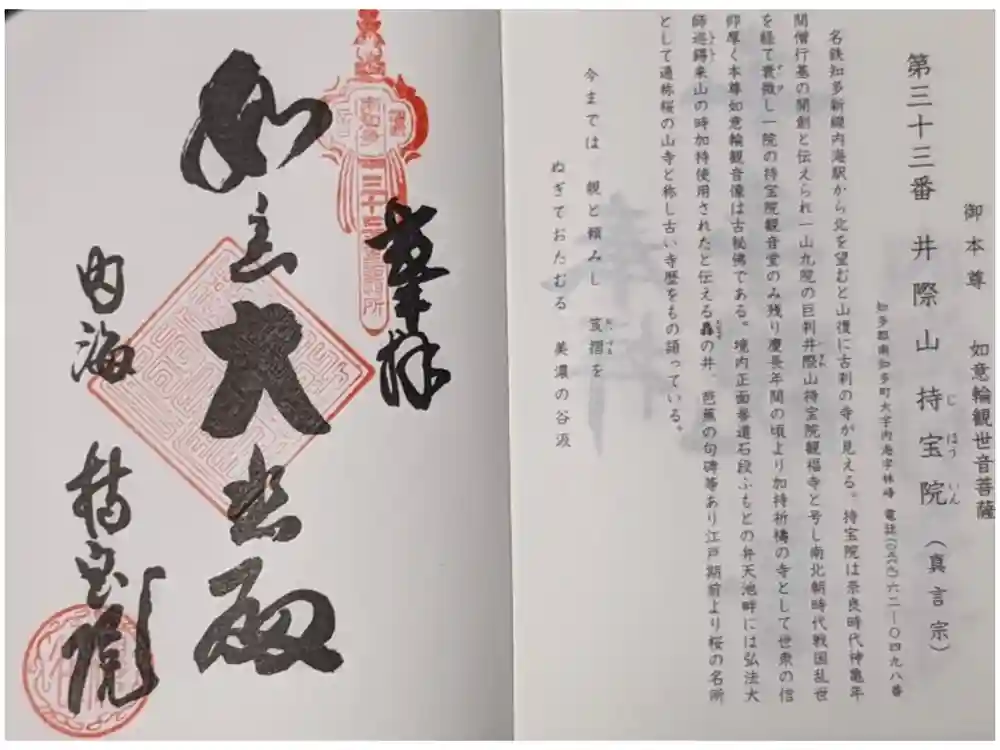 御本尊 如意輪観世音菩薩
第三十三番 井際山 持宝院(真言宗)
じほういん
知多郡南知多町大字内海字林之峰 電話(〇五六九)六二―〇四九八番
名鉄知多新線内海駅から北を望むと山腹に古刹の寺が見える。持宝院は奈良時代神亀年
間僧行基の開創と伝えられ一山九院の巨刹井際山持宝院観福寺と号し南北朝時代戦国乱世
を経て衰微し一院の持宝院観音堂のみ残り慶長年間の頃より加持祈禱の寺として世衆の信
仰厚く本尊如意輪観音像は古秘佛である。境内正面参道石段ふもとの弁天池畔には弘法大
師巡錫来山の時加持使用されたと伝える轟の井、芭蕉の句碑等あり江戸期前より桜の名所
として通称桜の山寺と称し古い寺歴をもの語っている。
今までは 親と頼みし 笈摺を
ぬぎておたむる 美濃の谷汲
奉拝
三十三
内海 持宝院